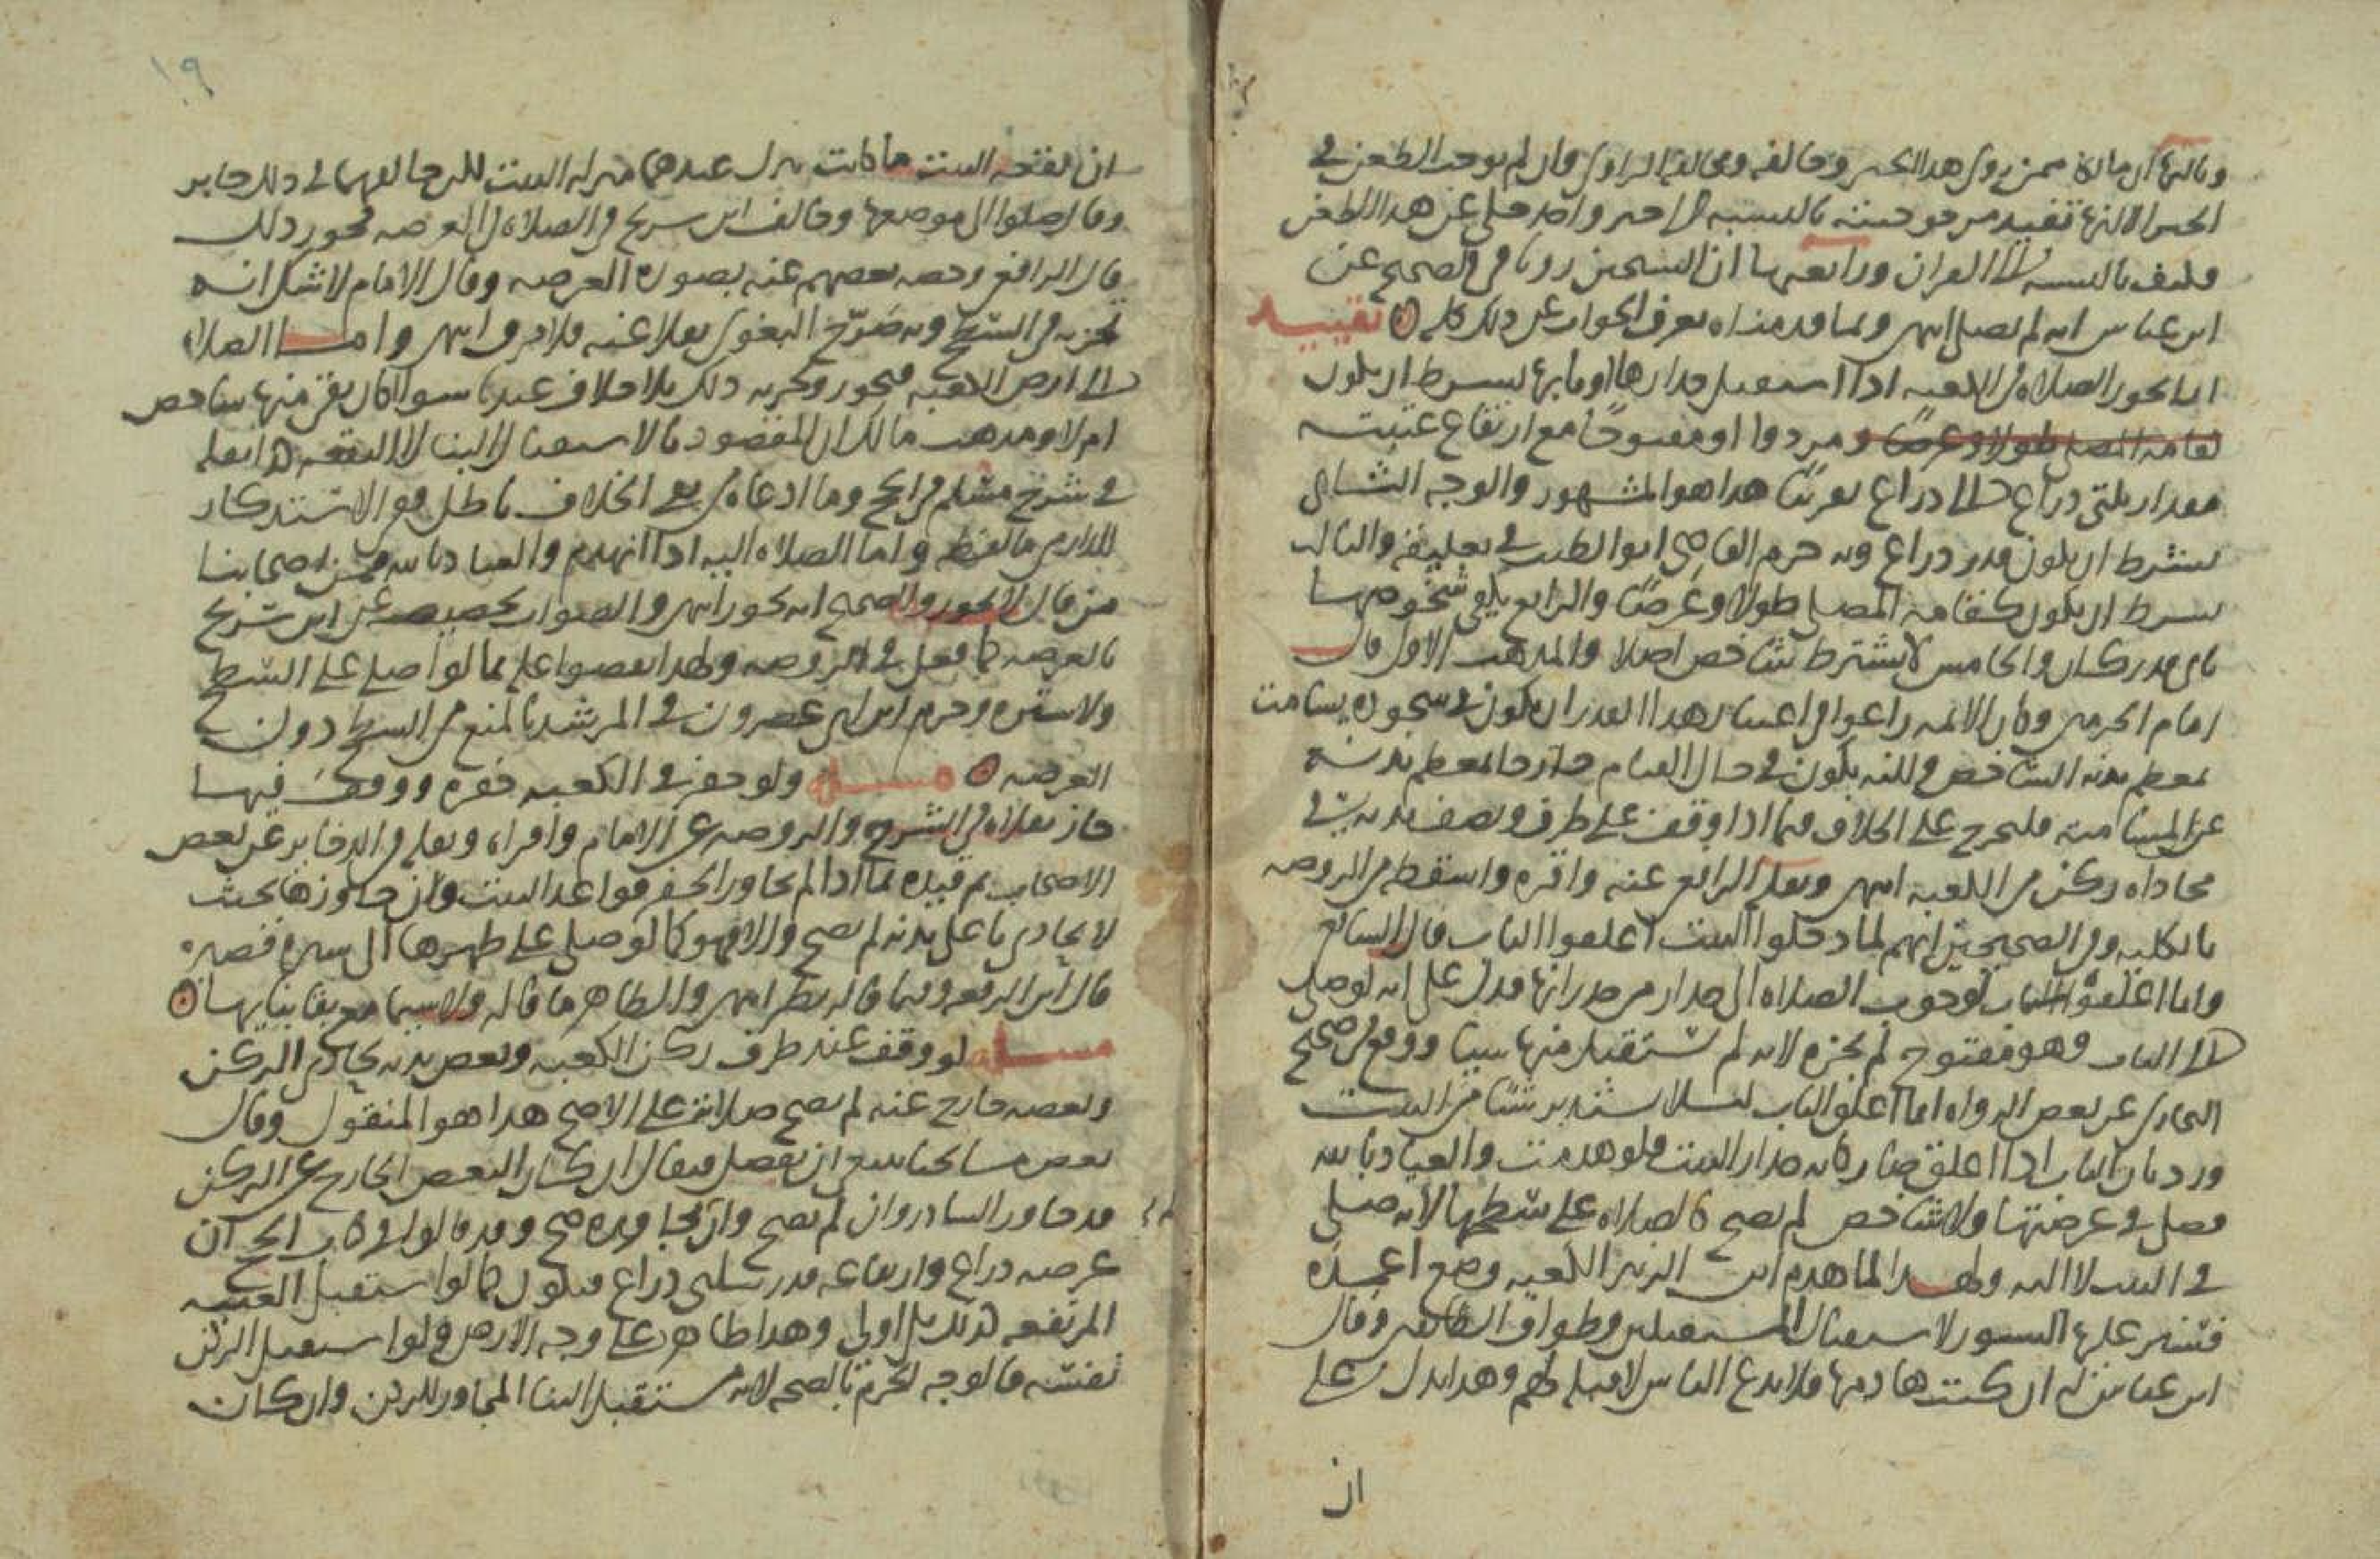 وثالثها ان مالكا ممن روى هذا الخبر وخالفه ومخالفة الراوي وان لم توجب الطعن في
الخبر الا انها تفيد مرجوحيته بالنسبة الى خبر واحد خلي عن هذا الطعن
فكيف بالنسبة الى القران ورابعها ان الشيخين رويا في الصحيح عن
ابن عباس انه لم يصل انتهى وبما قدمناه يعرف الجواب عن ذلك كله تقييد
انما تجوز الصلاة في الكعبة اذا استقبل جدارها او بابها بشرط ان يكون
كقامة المصلي طولا وعرضا ومردودا او مفتوحا مع ارتفاع عتبته
مقدار ثلثي ذراع الى ذراع تقريبا هذا هو المشهور والوجه الثاني
يشترط ان يكون قدر ذراع وبه جزم القاضي ابو الطيب في تعليقه والثالث
يشترط ان يكون كقامة المصلي طولا وعرضا والرابع يكفي شخوصها
باي قدر كان والخامس لا يشترط شاخص اصلا والمذهب الاول قال
امام الحرمين وكان الائمة راعوا في اعتبار هذا القدر ان يكون في سجوده يسامت
بمعظم بدنه الشاخص ولكنه يكون في حال القيام خارجا معظم بدنه
عن المسامتة فليخرج على الخلاف فيما اذا وقف على طرف ونصف بدنه في
محاذاة ركن من الكعبة انتهى ونقله الرافعي عنه واقره واسقطه من الروضة
بالكلية وفي الصحيحين انهم لما دخلوا البيت اغلقوا الباب قال الشافعي
وانما اغلقوا الباب لوجوب الصلاة الى جدار من جدرانها فدل على انه لو صلى
الى الباب وهو مفتوح لم يجزه لانه لم يستقبل منها شيئا ووقع في صحيح
البخاري عن بعض الرواة انما اغلق الباب لئلا يستدبر شيئا من البيت
ورد بان الباب اذا اغلق صار كانه جدار البيت فلو هدمت والعياذ بالله
فصلى في عرصتها ولا شاخص لم تصح كالصلاة على سطحها لانه صلى
في البيت لا اليه ولهذا لما هدم ابن الزبير الكعبة وضع اعمدة
فستر عليها الستور لاستقبال المستقبلين وطواف الطائفين وقال
ابن عباس له ان كنت هادمها فلا تدع الناس لا قبلة لهم وهذا يدل على
ان
١٩
ان بقعة البيت ما كانت تنزل عندهما منزلة البيت لكن خالفهما في ذلك جابر
وقال صلوا الى موضعها وخالف ابن سريج في الصلاة في العرصة فجوز ذلك
قال الرافعي وخصه بعضهم عنه بصورة العرصة وقال الامام لا شك انه
يجريه في السطح وبه صرح البغوي نقلا عنه فلا فرق انتهى واما الصلاة
الى ارض الكعبة فتجوز وتجزيه ذلك بلا خلاف عندنا سواء كان بقي منها شاخص
ام لا ومذهب مالك ان المقصود بالاستقبال البناء لا البقعة كذا نقله
في شرح مسلم في الحج وما ادعاه من نفي الخلاف باطل ففي الاستذكار
للدارمي ما لفظه واما الصلاة اليه اذا انهدم والعياذ بالله فمن اصحابنا
من قال لا تجوز والصحيح انه تجوز انتهى والصواب تخصيصه عن ابن سريج
بالعرصة كما فعل في الروضة ولهذا نصوا على ما لو صلى على السطح
ولا سترة وجزم ابن ابي عصرون في المرشد بالمنع في السطح دون
العرصة مسئلة ولو حفر في الكعبة حفرة ووقف فيها
جاز نقلاه في الشرح والروضة عن الامام واقراه ونقله في الذخاير عن بعض
الاصحاب ثم قيده بما اذا لم يجاوز الحفر قواعد البيت وان جاوزها بحيث
لا يحاذي باعلى بدنه لم تصح والا فهو كما لو صلى على ظهرها الى سترة قصيرة
قال ابن الرفعة وفيما قاله نظر انتهى والظاهر ما قاله ولاسيما مع بقا بنايها
مسئلة لو وقف عند طرف ركن الكعبة وبعض بدنه يحاذي الركن
وبعضه خارج عنه لم تصح صلاته على الاصح هذا هو المنقول وقال
بعض مشايخنا ينبغي ان يفصل فيقال ان كان البعض الخارج عن الركن
قد جاوز الشاذروان لم تصح وان لم يجاوزه صح وقد قالوا في كتاب الحج ان
عرضه ذراع وارتفاعه قدر ثلثي ذراع فيكون كما لو استقبل العتبة
المرتفعة كذلك بل اولى وهذا ظاهر على وجه الارض ولو استقبل الركن
نفسه فالوجه الجزم بالصحة لانه مستقبل البناء المجاور للركن وان كان